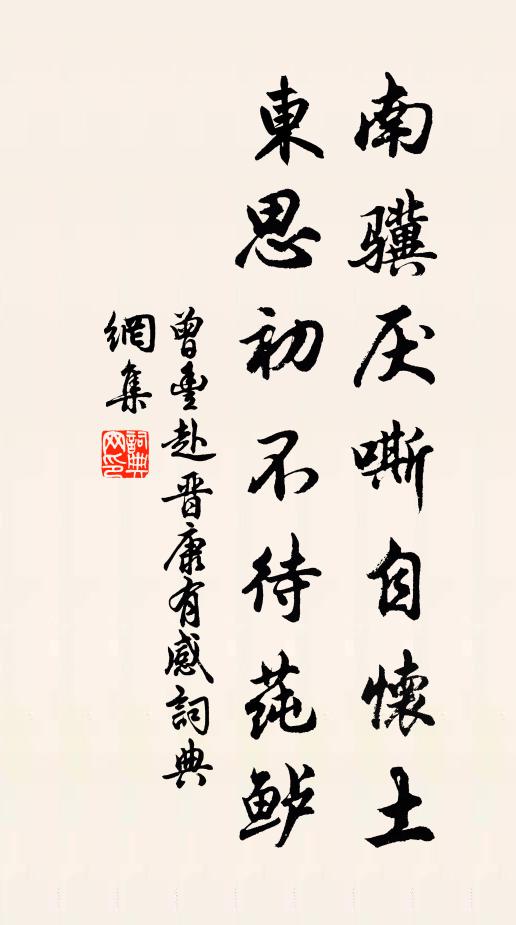 南骥厌嘶自懷土
東思初不待莼鲈
曾豊赴晋康有感詞典
網集
詞典網印